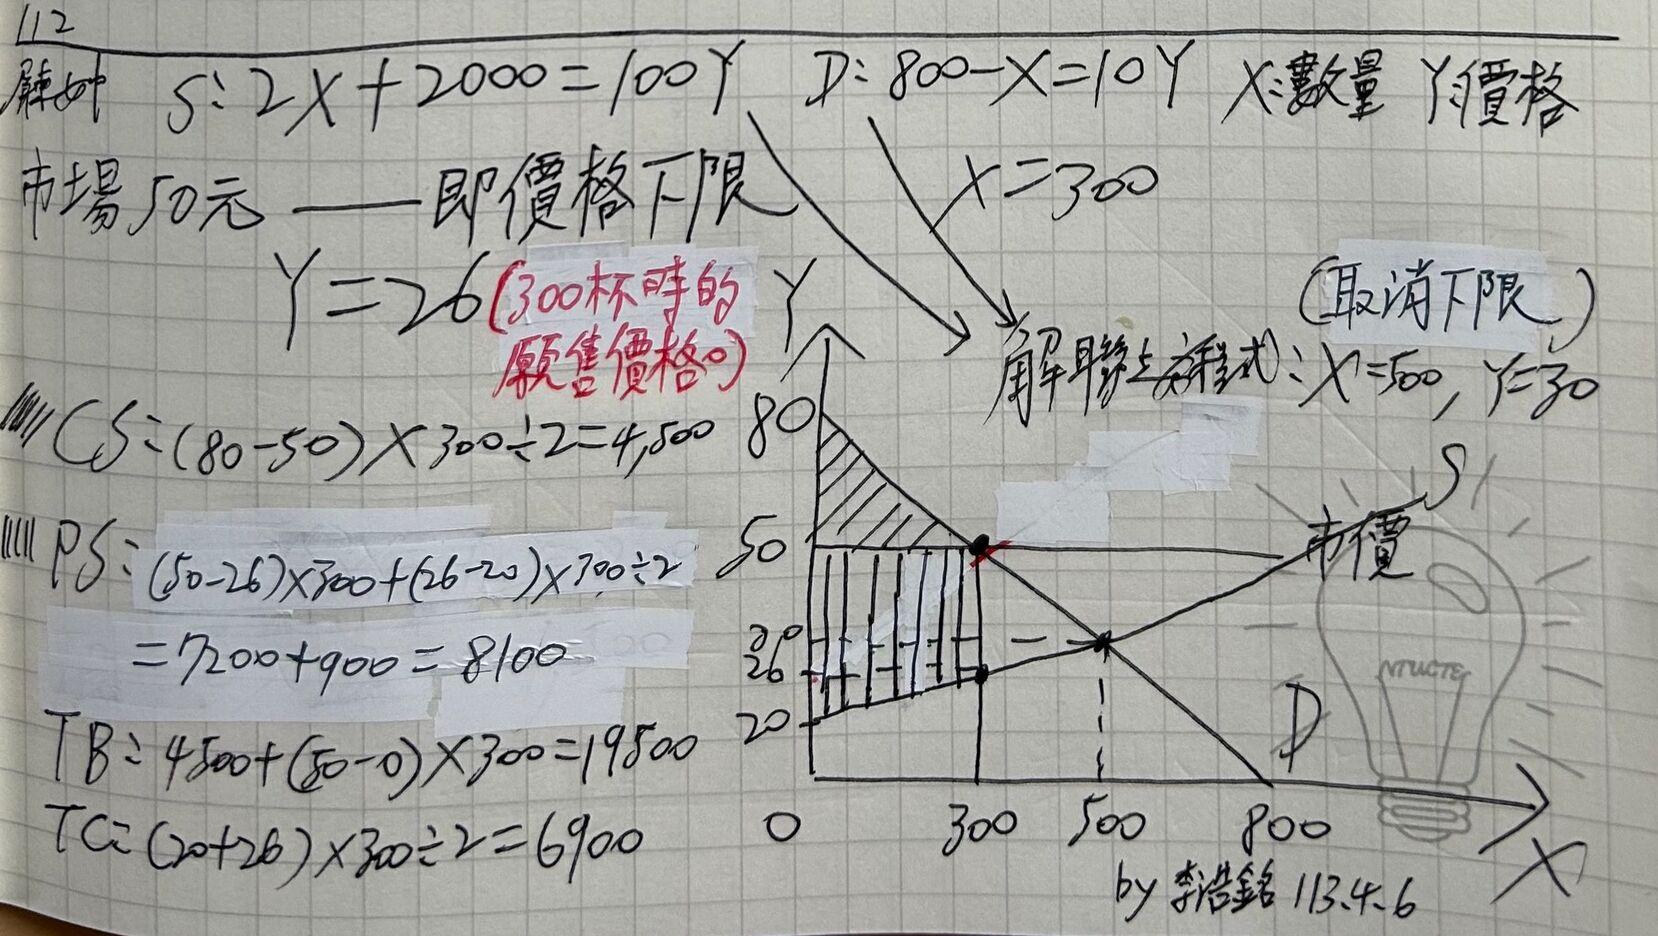 112
S: 2X+2000=100Y D: 800-X=10Y X:數量 Y:價格
市場50元 — 即價格下限 X=300
Y=26(300杯時的
願售價格。)
(取消下限)
解聯立方程式: X=500, Y=30
CS: (80-50)×300÷2=4,500
PS: (50-26)×300+(26-20)×300÷2
=7200+900=8100
TB: 4500+(50-0)×300=19500
TC: (20+26)×300÷2=6900
Y
80
50
30
26
20
0 300 500 800
X
S
市價
D
NTUCTE
by 李浩銘 113.4.6